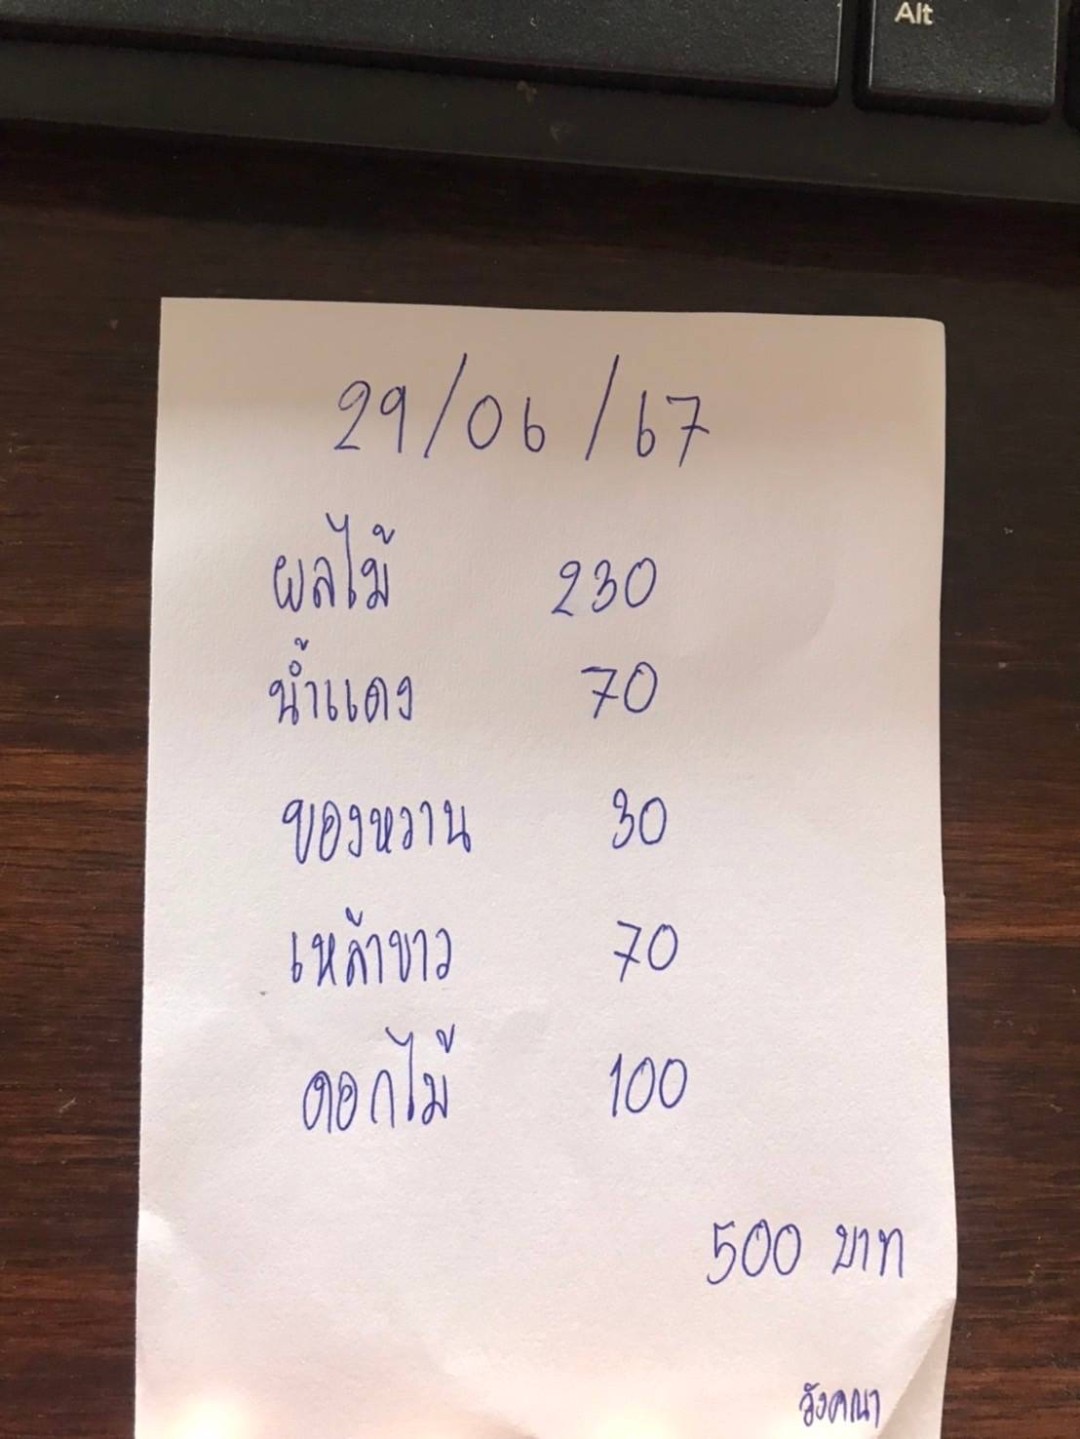 Alt
29/06/67
ผลไม้ 230
น้ำแดง 70
ของหวาน 30
เหล้าขาว 70
ดอกไม้ 100
500 บาท
วังคณา